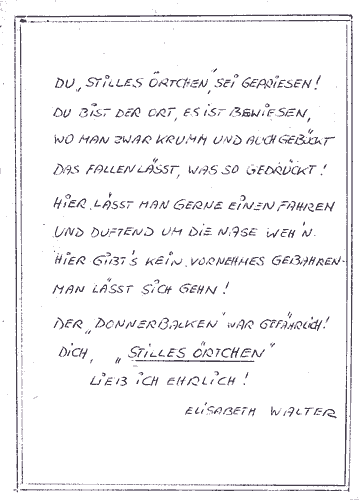 DU „STILLES ÖRTCHEN", SEI GEPRIESEN!
DU BIST DER ORT, ES IST BEWIESEN,
WO MAN ZWAR KRUMM UND AUCH GEBÜCKT
DAS FALLEN LÄSST, WAS SO GEDRÜCKT!
HIER LÄSST MAN GERNE EINEN FAHREN
UND DUFTEND UM DIE NASE WEH'N.
HIER GIBT'S KEIN VORNEHMES GEBAHREN-
MAN LÄSST SICH GEHN!
DER „DONNERBALKEN" WAR GEFÄHRLICH!
DICH, „STILLES ÖRTCHEN"
LIEB ICH EHRLICH!
ELISABETH WALTER